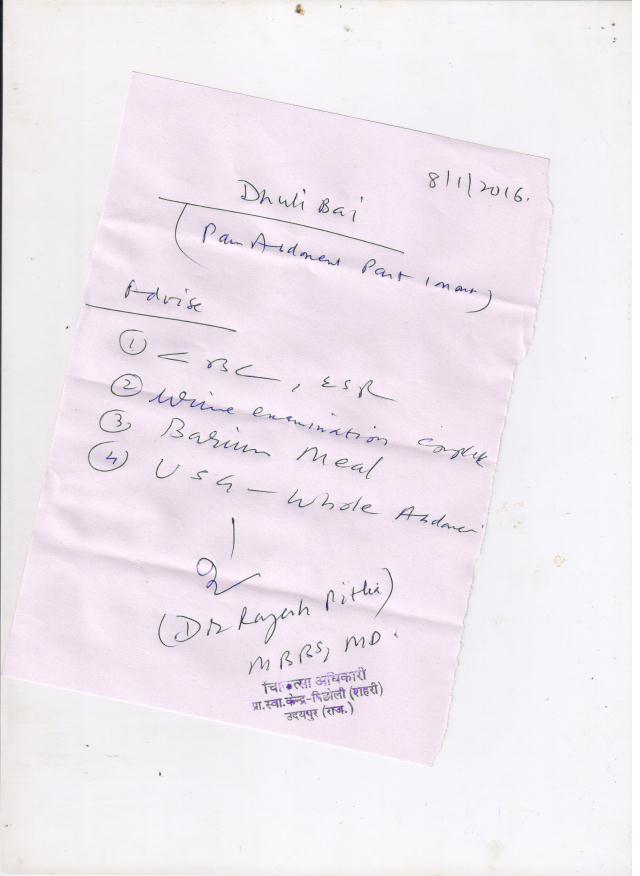 8/1/2016.
Dhuli Bai
(Pain Abdoment Past 1 mont)
Advise
① CBC, ESR
② Urine examination complete
③ Barium Meal
④ USG - Whole Abdomen
(Dr Rajesh
MBBS, MD.
चिकित्सा अधिकारी
प्रा.स्वा.केन्द्र-(शहरी)
उदयपुर (राज.)